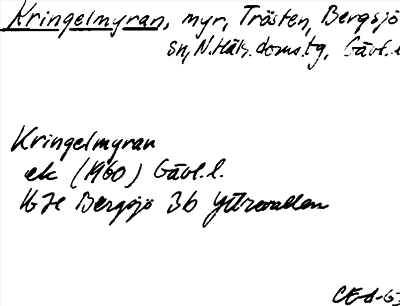 Kringelmyran, myr, Trösten, Bergsjö
sn, N.Häls.doms.tg, Gävl.l
Kringelmyran
ek (1960) Gävl.l.
16H Bergsjö 3b Yttrevallen
CEd-63